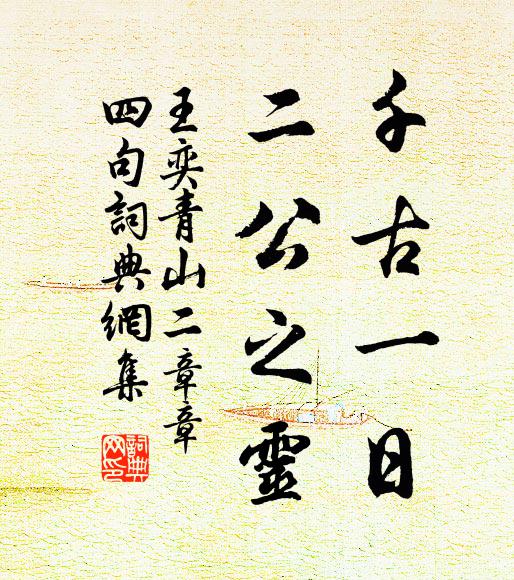 千古一日
二公之靈
王奕青山二章章
四句詞典網集
詞典
网印